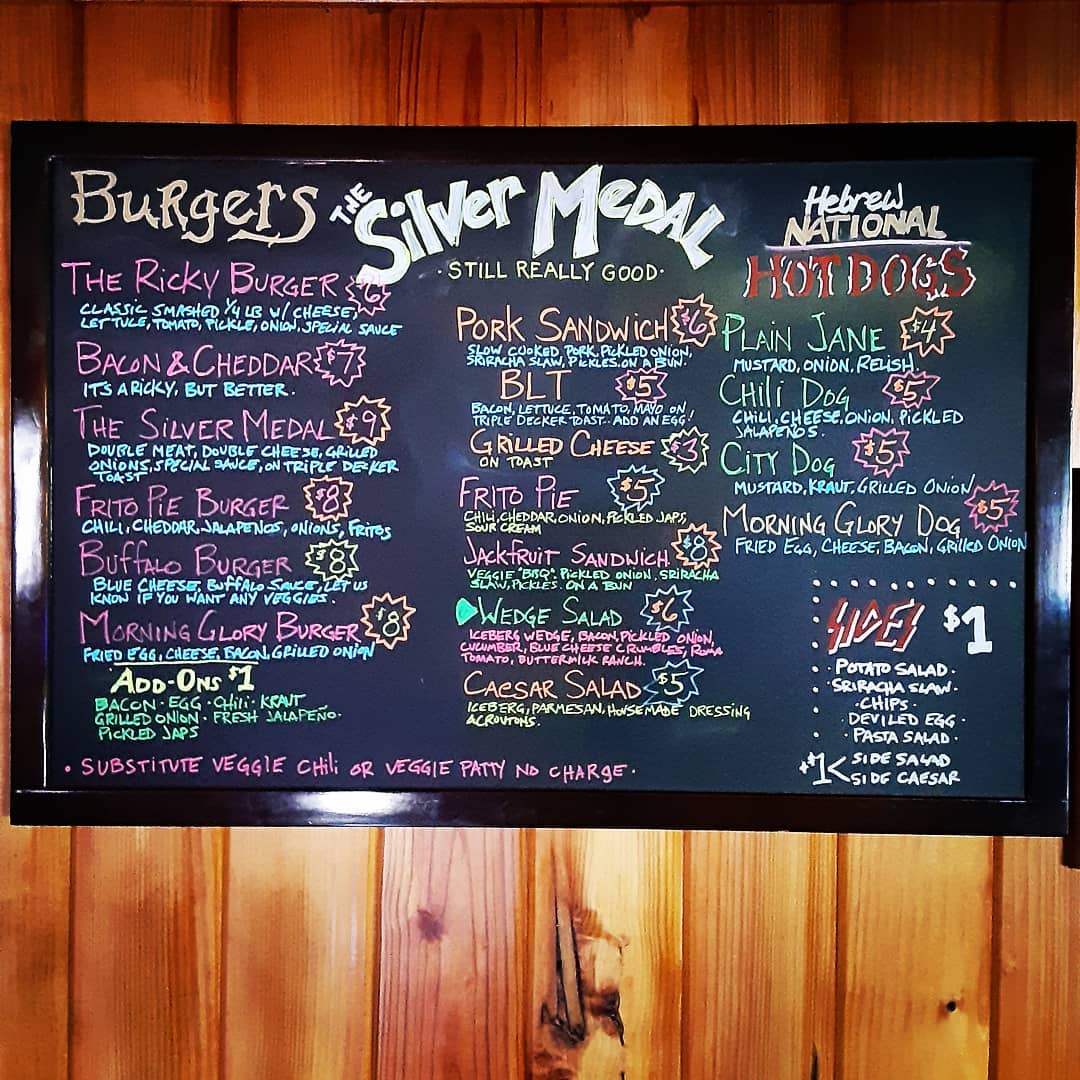 Burgers
THE RICKY BURGER $6
CLASSIC SMASHED 1/4 LB W/ CHEESE,
LETTUCE, TOMATO, PICKLE, ONION, SPECIAL SAUCE
BACON & CHEDDAR $7
IT'S A RICKY, BUT BETTER.
THE SILVER MEDAL $9
DOUBLE MEAT, DOUBLE CHEESE, GRILLED
ONIONS, SPECIAL SAUCE, ON TRIPLE DECKER
TOAST
FRITO PIE BURGER $8
CHILI, CHEDDAR, JALAPENOS, ONIONS, FRITOS
BUFFALO BURGER $8
BLUE CHEESE, BUFFALO SAUCE, LET US
KNOW IF YOU WANT ANY VEGGIES.
MORNING GLORY BURGER $8
FRIED EGG, CHEESE, BACON, GRILLED ONION
ADD-ONS $1
BACON · EGG · CHILI · KRAUT
GRILLED ONION · FRESH JALAPEÑO ·
PICKLED JAPS
· SUBSTITUTE VEGGIE CHILI OR VEGGIE PATTY NO CHARGE ·
THE SILVER MEDAL
· STILL REALLY GOOD ·
PORK SANDWICH $6
SLOW COOKED PORK, PICKLED ONION,
SRIRACHA SLAW, PICKLES. ON A BUN.
BLT $5
BACON, LETTUCE, TOMATO, MAYO ON
TRIPLE DECKER TOAST. ADD AN EGG!
GRILLED CHEESE $3
ON TOAST
FRITO PIE $5
CHILI, CHEDDAR, ONION, PICKLED JAPS,
SOUR CREAM
JACKFRUIT SANDWICH $8
VEGGIE "BBQ". PICKLED ONION, SRIRACHA
SLAW, PICKLES. ON A BUN
WEDGE SALAD $6
ICEBERG WEDGE, BACON, PICKLED ONION,
CUCUMBER, BLUE CHEESE CRUMBLES, ROMA
TOMATO, BUTTERMILK RANCH.
CAESAR SALAD $5
ICEBERG, PARMESAN, HOUSEMADE DRESSING
& CROUTONS.
Hebrew
NATIONAL
HOT DOGS
PLAIN JANE $4
MUSTARD, ONION, RELISH
CHILI DOG $5
CHILI, CHEESE, ONION, PICKLED
JALAPENOS.
CITY DOG $5
MUSTARD, KRAUT, GRILLED ONION
MORNING GLORY DOG $5
FRIED EGG, CHEESE, BACON, GRILLED ONION
SIDES $1
· POTATO SALAD ·
· SRIRACHA SLAW ·
· CHIPS ·
· DEVILED EGG ·
· PASTA SALAD ·
+$1< SIDE SALAD
SIDE CAESAR